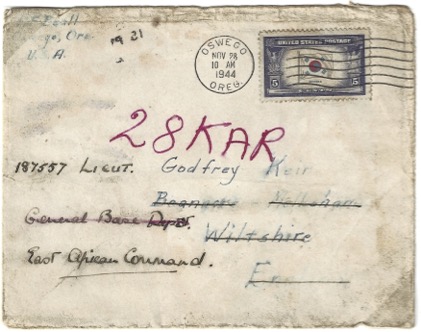 go, Ore
U.S.A.
19 21
OSWEGO
NOV 28
10 AM
1944
OREG.
UNITED STATES POSTAGE
5 5
KOREA
28 KAR
187557 LIEUT. Godfrey Keir
General Base Depot.
Wiltshire
East African Command.